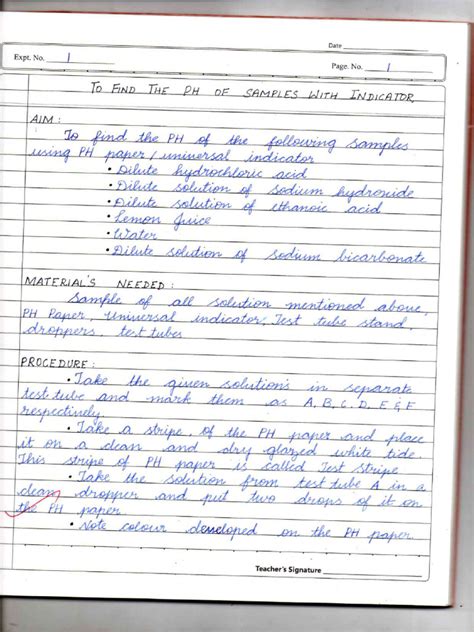 Date
Expt. No. 1
Page. No. 1
TO FIND THE PH OF SAMPLES WITH INDICATOR
AIM :
To find the PH of the following samples
using PH paper / universal indicator
• Dilute hydrochloric acid
• Dilute solution of sodium hydroxide
• Dilute solution of ethanoic acid
• Lemon Juice
• Water
• Dilute solution of sodium bicarbonate
MATERIAL'S NEEDED :
Sample of all solution mentioned above,
PH Paper, universal indicator, Test tube stand,
droppers, test tubes
PROCEDURE :
• Take the given solution's in separate
test tube and mark them as A, B, C, D, E & F
respectively
• Take a stripe, of the PH paper and place
it on a clean and dry glazed white tide.
This stripe of PH paper is called Test Stripe
• Take the solution from test tube A in a
clean dropper and put two drops of it on
the PH paper
• Note colour developed on the PH paper
Teacher's Signature